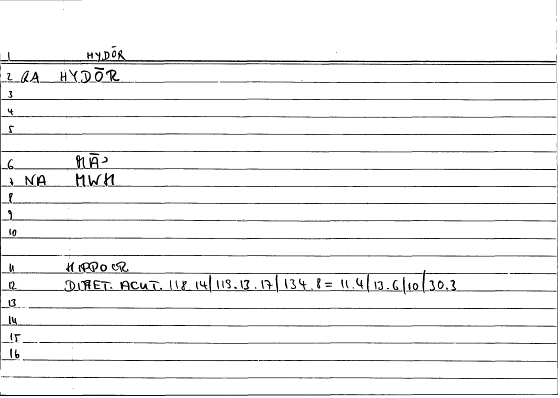 1 HYDŌR
2 AA HYDŌR
3
4
5
6 MĀʾ
7 NA MWH
8
9
10
11 HIPPOCR
12 DIAET. ACUT. 118.14/119.13.17/134.8 = 11.4/13.6/10/30.3
13
14
15
16